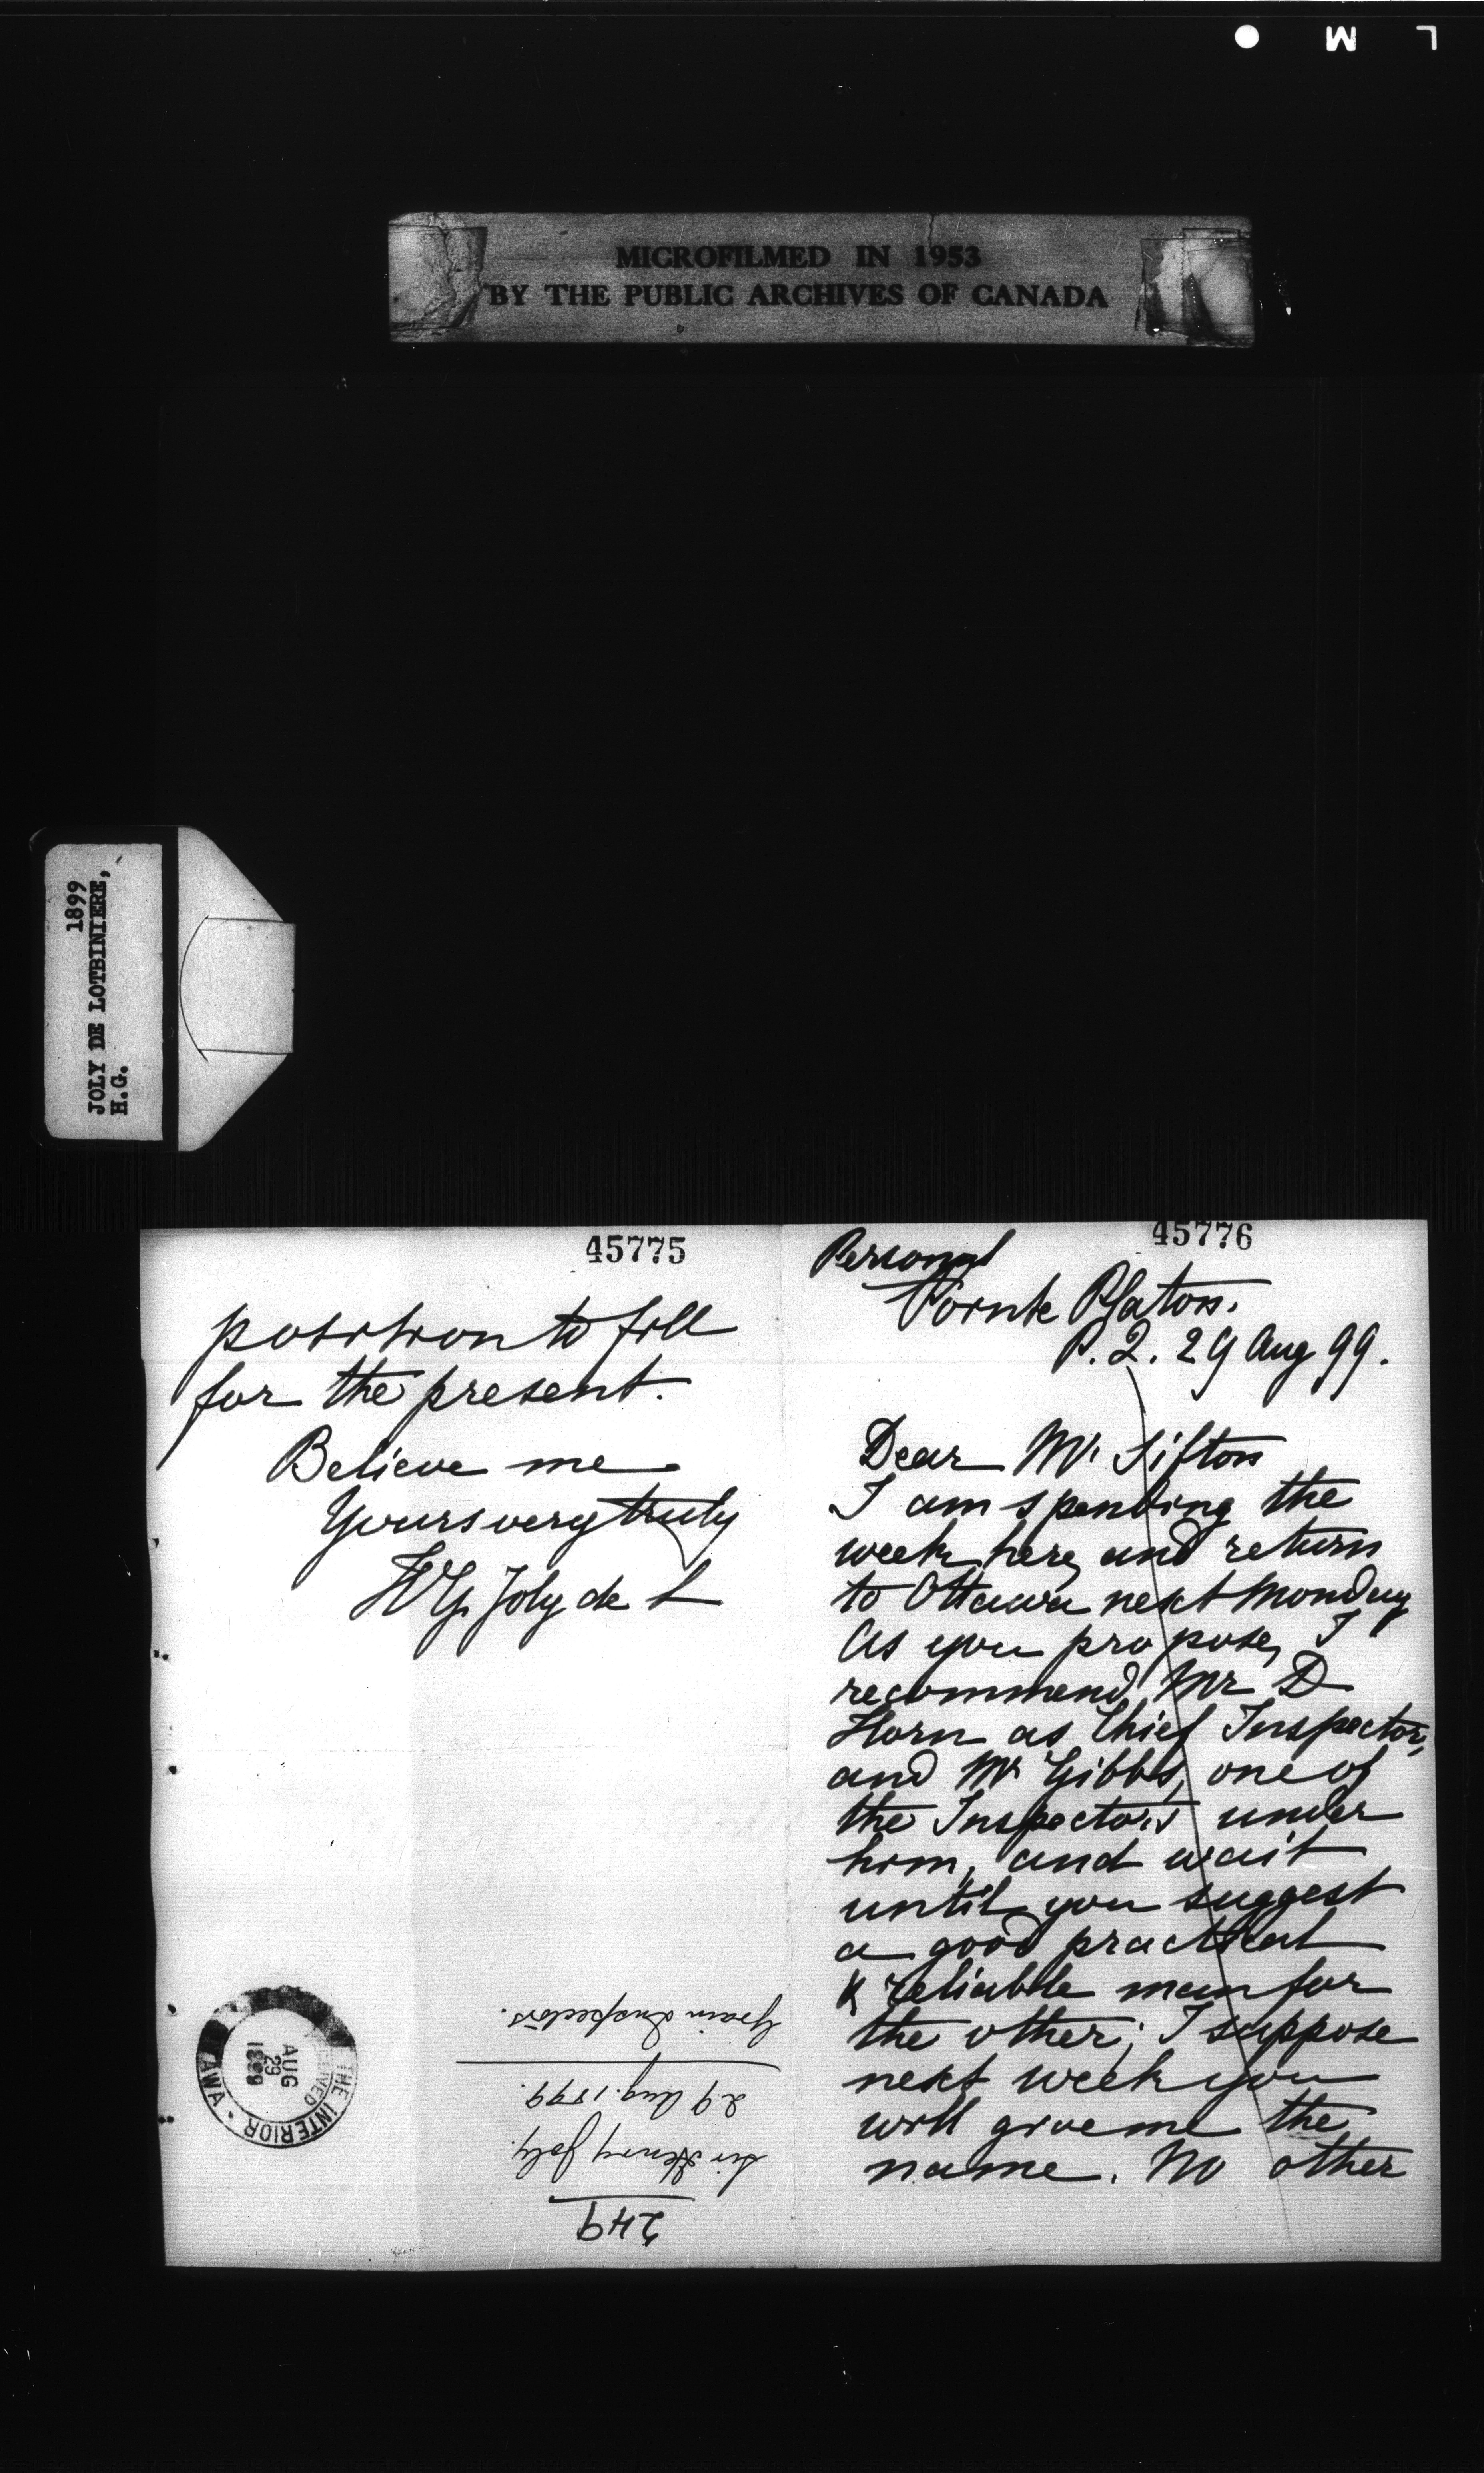 L M
MICROFILMED IN 1953
BY THE PUBLIC ARCHIVES OF CANADA
1899
JOLY DE LOTBINIERE,
H.G.
45776
Personal
Pointe Platon.
P.Q. 29 Aug 99.
Dear Mr Sifton
I am spending the
week here, and return
to Ottawa next Monday
As you propose, I
recommend Mr D
Horn as Chief Inspector,
and Mr Gibbs, one of
the Inspectors under
him, and wait
until you suggest
a good practical
& reliable man for
the other; I suppose
next week you
will give me the
name. No other
45775
position to fill
for the present.
Believe me
Yours very truly
HG. Joly de L
249
Sir Henry Joly.
29 Aug. 1899.
Grain Inspectors.
THE INTERIOR
AUG
29
1899